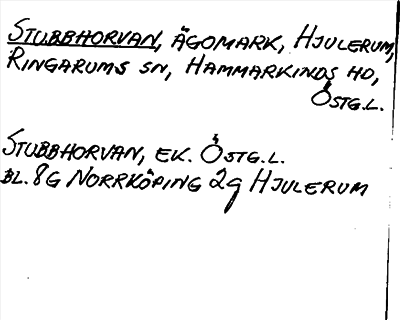 STUBBHORVAN, ÄGOMARK, HJULERUM,
RINGARUMS SN, HAMMARKINDS HD,
ÖSTG.L.
STUBBHORVAN, EK. ÖSTG.L.
BL. 8G NORRKÖPING 2g HJULERUM